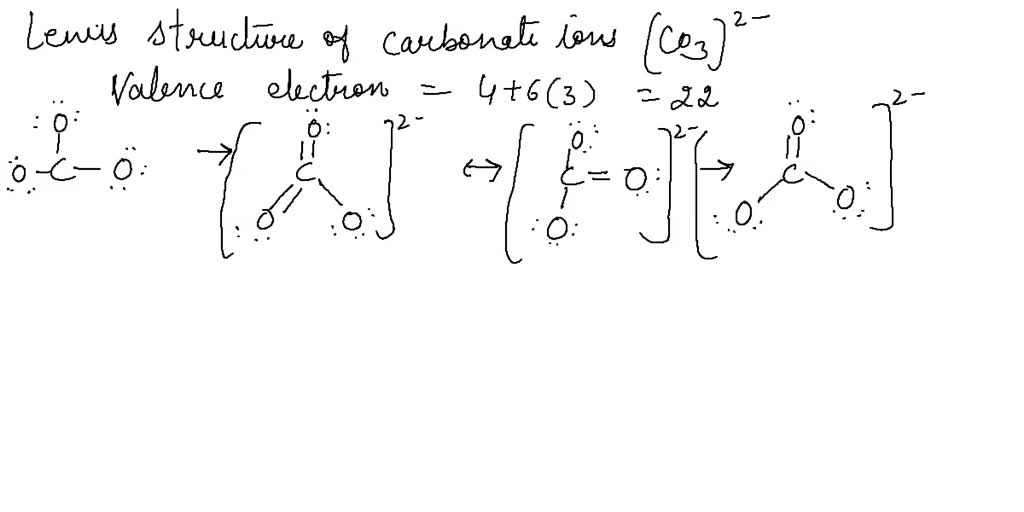 Lewis structure of carbonate ions [CO3]2-
Valence electron = 4+6(3) = 22
:Ö: → [:Ö: ]2- ↔ [:Ö: ]2- → [:Ö: ]2-
O-C-O: C C=O: C
O O O O O